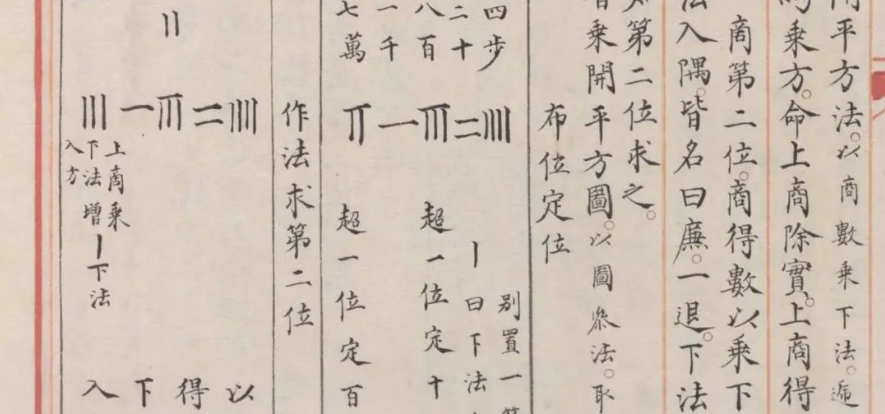 開平方法。以商數乘下法。遞
乘方。命上商除實。上商得
商第二位。商得數以乘下
法入隅。皆名曰廉。一退。下法
第二位求之。
乘開平方圖。以圖參法。取
布位定位
四步 𝍣
別置一
丨曰下法
二十 〢
八百 𝍧 超一位定十
一千 一
七萬 𝍦 超一位定百
作法求第二位
𝍣
〢 以
𝍧 得
一 下
〣 上商乘下法增入方 丨下法 入
〢